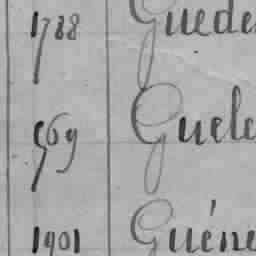 1788 Guede
569 Guele
1901 Guéne